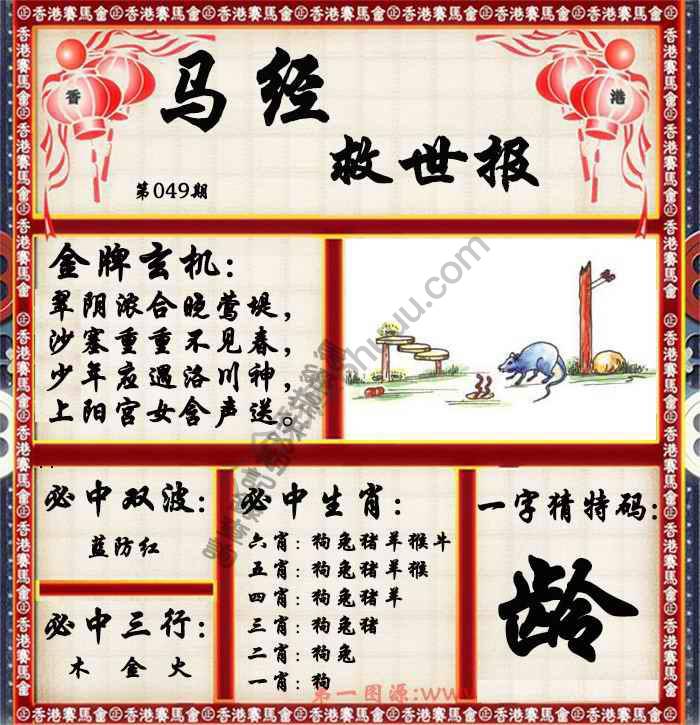 香港賽馬會
香
港
马经
救世报
第049期
金牌玄机：
翠阴浓合晓莺堤，
沙塞重重不见春，
少年应遇洛川神，
上阳宫女含声送。
必中双波：
蓝防红
必中三行：
木 金 火
必中生肖：
六肖：狗兔猪羊猴牛
五肖：狗兔猪羊猴
四肖：狗兔猪羊
三肖：狗兔猪
二肖：狗兔
一肖：狗
一字猜特码：
龄
第一图源:www